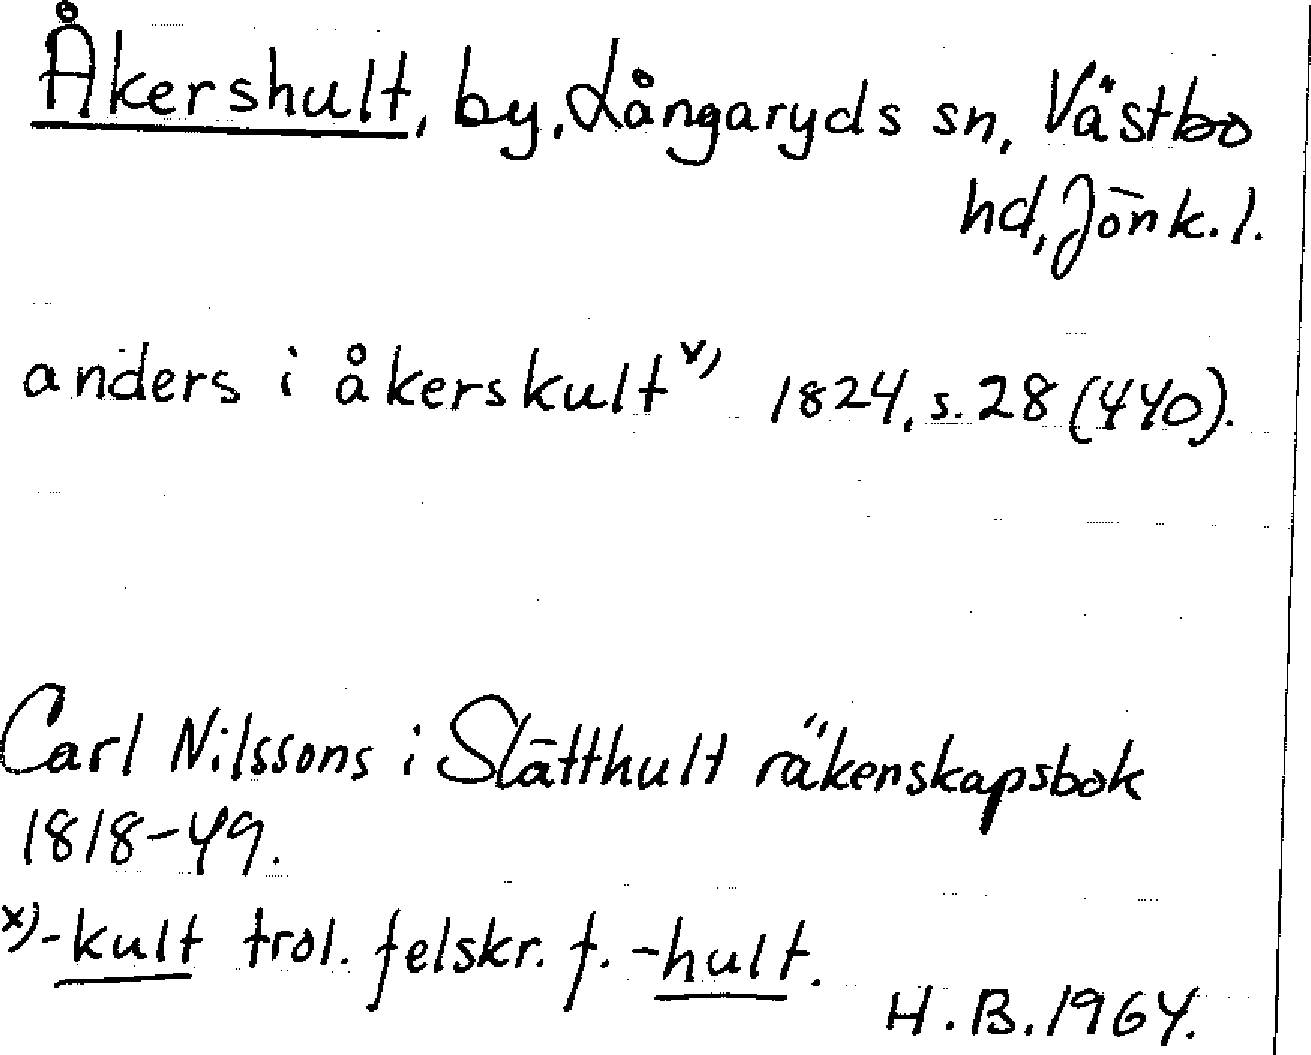 Åkershult, by, Långaryds sn, Västbo
hd, Jönk. l.
anders i åkerskult x) 1824, s. 28 (440).
Carl Nilssons i Slätthult räkenskapsbok
1818-49.
x) -kult trol. felskr. f. -hult.
H. B. 1964.